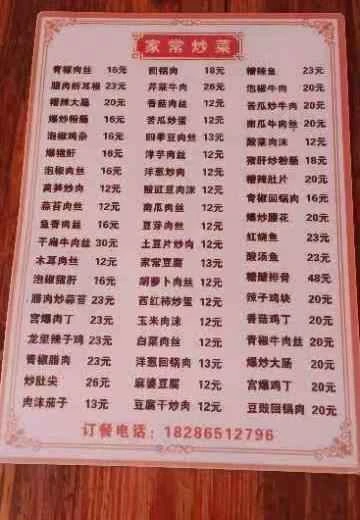 家常炒菜
青椒肉丝 16元 回锅肉 18元 糟辣鱼 23元
腊肉折耳根 23元 芹菜牛肉 26元 泡椒牛肉 20元
糟辣大肠 20元 香菇肉丝 12元 苦瓜炒牛肉 20元
爆炒粉肠 16元 苦瓜炒蛋 12元 南瓜牛肉丝 20元
泡椒鸡杂 16元 四季豆肉丝 13元 酸菜肉沫 12元
爆猪肝 16元 洋芋肉丝 12元 猪肝炒粉肠 18元
泡椒肉丝 16元 洋葱炒肉 12元 糟辣肚片 20元
莴笋炒肉 12元 酸豇豆肉沫 12元 青椒回锅肉 16元
蒜苔肉丝 12元 南瓜肉丝 12元 爆炒腰花 20元
鱼香肉丝 16元 豆芽肉丝 12元 红烧鱼 23元
干煸牛肉丝 30元 土豆片炒肉 12元 酸汤鱼 23元
木耳肉丝 12元 家常豆腐 13元 糖醋排骨 48元
泡椒猪肝 16元 胡萝卜肉丝 12元 辣子鸡块 20元
腊肉炒蒜苔 23元 西红柿炒蛋 12元 香菇鸡丁 20元
宫爆肉丁 23元 玉米肉沫 12元 青椒牛肉丝 20元
龙里辣子鸡 23元 白菜肉丝 12元 爆炒大肠 20元
青椒腊肉 23元 洋葱回锅肉 13元 宫爆鸡丁 20元
炒肚尖 26元 麻婆豆腐 12元 豆豉回锅肉 20元
肉沫茄子 13元 豆腐干炒肉 12元
订餐电话：18286512796